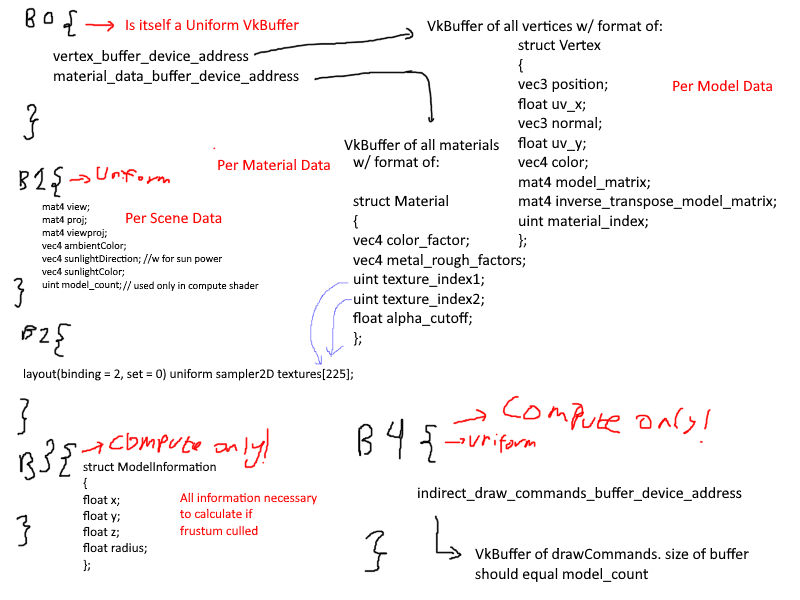 B0{ → Is itself a Uniform VkBuffer
vertex_buffer_device_address
material_data_buffer_device_address
}
VkBuffer of all vertices w/ format of:
struct Vertex
{
vec3 position;
float uv_x;
vec3 normal;
float uv_y;
vec4 color;
mat4 model_matrix;
mat4 inverse_transpose_model_matrix;
uint material_index;
};
Per Model Data
VkBuffer of all materials
w/ format of:
Per Material Data
struct Material
{
vec4 color_factor;
vec4 metal_rough_factors;
uint texture_index1;
uint texture_index2;
float alpha_cutoff;
};
B1{ → Uniform
mat4 view;
mat4 proj;
mat4 viewproj;
vec4 ambientColor;
vec4 sunlightDirection; //w for sun power
vec4 sunlightColor;
uint model_count; // used only in compute shader
Per Scene Data
}
B2{
layout(binding = 2, set = 0) uniform sampler2D textures[225];
}
B3{ → Compute only!
struct ModelInformation
{
float x;
float y;
float z;
float radius;
};
All information necessary
to calculate if
frustum culled
}
B4{ → Compute only!
→ Uniform
indirect_draw_commands_buffer_device_address
VkBuffer of drawCommands. size of buffer
should equal model_count
}